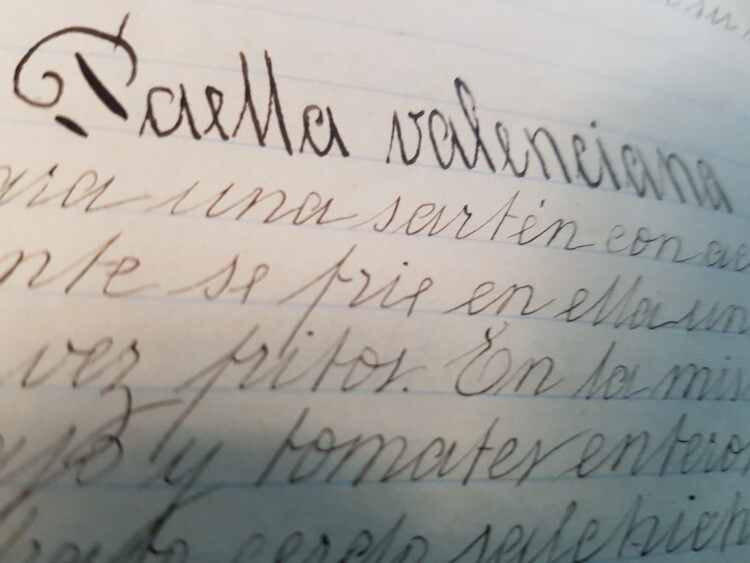 Paella valenciana
ara una sartén con ac
nte se frie en ella un
vez fritos. En la mis
ajo y tomates enteros
cerdo salchich